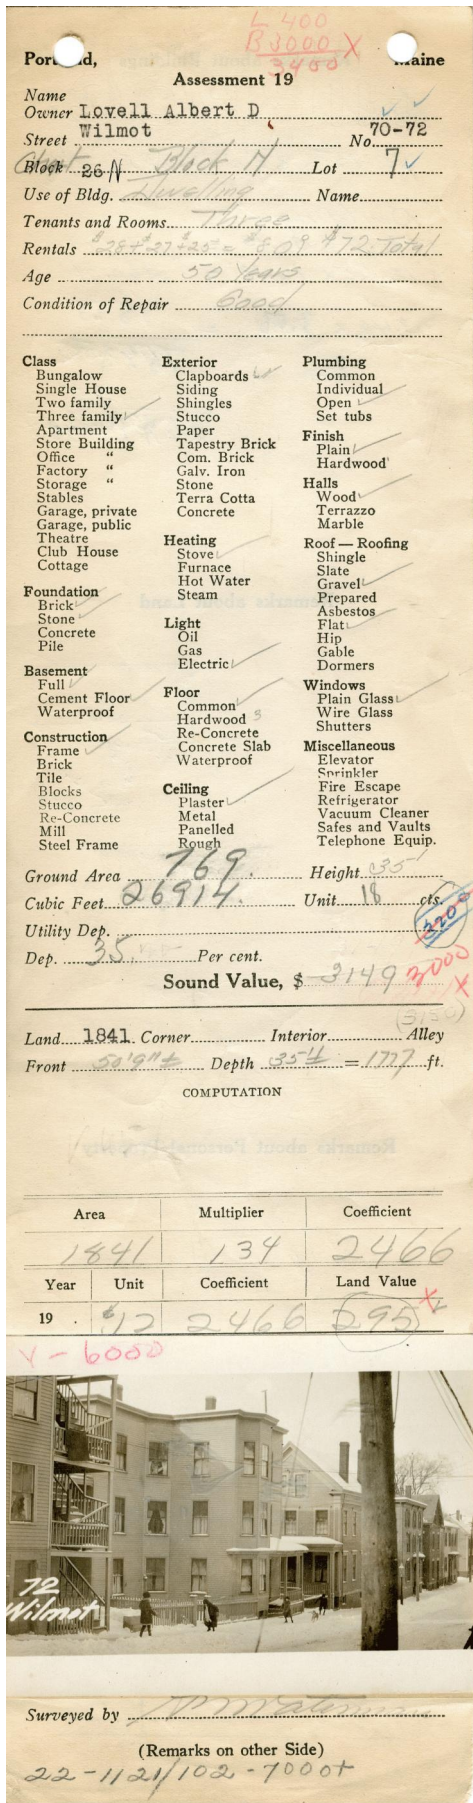 L 400
B 3000 X
3400
Portland, Maine
Assessment 19
Name
Owner Lovell Albert D
Street Wilmot No. 70-72
Chart Block 26 N Block N Lot 7
Use of Bldg. Dwelling Name
Tenants and Rooms Three
Rentals $28 + $27 + $25 = $ $72 Total
Age 50 Years
Condition of Repair Good
Class
Bungalow
Single House
Two family
Three family ✓
Apartment
Store Building
Office "
Factory "
Storage "
Stables
Garage, private
Garage, public
Theatre
Club House
Cottage
Foundation
Brick ✓
Stone ✓
Concrete
Pile
Basement
Full ✓
Cement Floor ✓
Waterproof
Construction
Frame ✓
Brick
Tile
Blocks
Stucco
Re-Concrete
Mill
Steel Frame
Exterior
Clapboards ✓
Siding
Shingles
Stucco
Paper
Tapestry Brick
Com. Brick
Galv. Iron
Stone
Terra Cotta
Concrete
Heating
Stove ✓
Furnace
Hot Water
Steam
Light
Oil
Gas
Electric ✓
Floor
Common ✓
Hardwood 3
Re-Concrete
Concrete Slab
Waterproof
Ceiling
Plaster ✓
Metal
Panelled
Rough
Plumbing
Common
Individual
Open ✓
Set tubs
Finish
Plain ✓
Hardwood
Halls
Wood ✓
Terrazzo
Marble
Roof — Roofing
Shingle
Slate
Gravel ✓
Prepared
Asbestos
Flat ✓
Hip
Gable
Dormers
Windows
Plain Glass ✓
Wire Glass
Shutters
Miscellaneous
Elevator
Sprinkler
Fire Escape
Refrigerator
Vacuum Cleaner
Safes and Vaults
Telephone Equip.
Ground Area 769. Height 35
Cubic Feet 26914. Unit 18 cts.
3200
Utility Dep.
Dep. 35 Per cent.
Sound Value, $ 3149 3000
X
(3150)
Land 1841 Corner Interior Alley
Front 50'9"± Depth 35± = 1777 ft.
COMPUTATION
Area Multiplier Coefficient
1841 134 2466
Year Unit Coefficient Land Value
19 . $12 2466 $295 X
V - 6000
72
Wilmot
Surveyed by
(Remarks on other Side)
22-1121/102-7000+